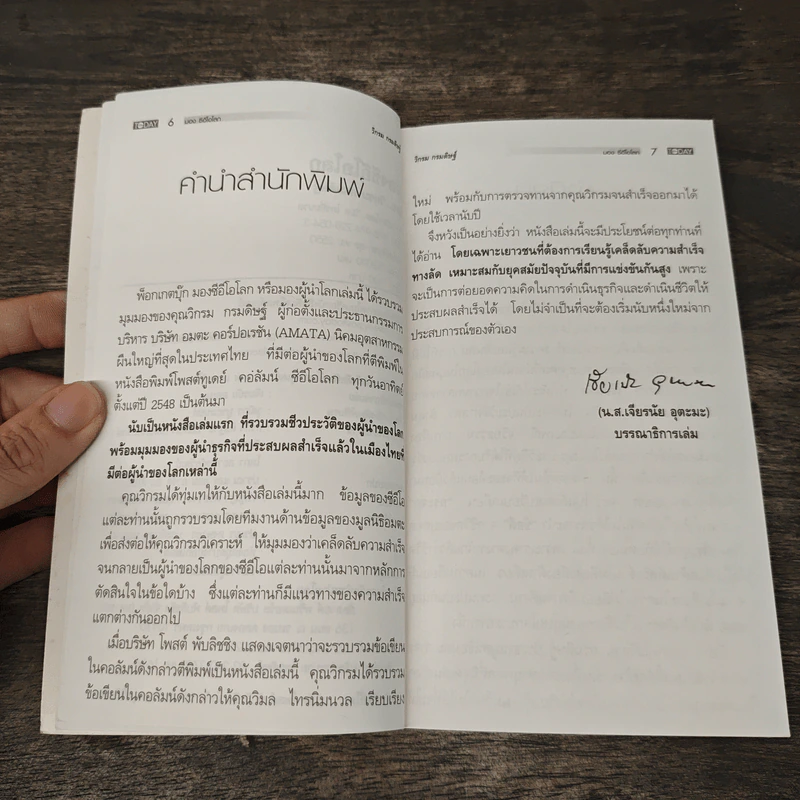 TODAY 6 มอง ซีอีโอโลก
วิกรม กรมดิษฐ์
คำนำสำนักพิมพ์
พ็อกเกตบุ๊ก มองซีอีโอโลก หรือมองผู้นำโลกเล่มนี้ ได้รวบรวม
มุมมองของคุณวิกรม กรมดิษฐ์ ผู้ก่อตั้งและประธานกรรมการ
บริหาร บริษัท อมตะ คอร์ปอเรชัน (AMATA) นิคมอุตสาหกรรม
ผืนใหญ่ที่สุดในประเทศไทย ที่มีต่อผู้นำของโลกที่ตีพิมพ์ใน
หนังสือพิมพ์โพสต์ทูเดย์ คอลัมน์ ซีอีโอโลก ทุกวันอาทิตย์
ตั้งแต่ปี 2548 เป็นต้นมา
นับเป็นหนังสือเล่มแรก ที่รวบรวมชีวประวัติของผู้นำของโลก
พร้อมมุมมองของผู้นำธุรกิจที่ประสบผลสำเร็จแล้วในเมืองไทยที่
มีต่อผู้นำของโลกเหล่านี้
คุณวิกรมได้ทุ่มเทให้กับหนังสือเล่มนี้มาก ข้อมูลของซีอีโอ
แต่ละท่านนั้นถูกรวบรวมโดยทีมงานด้านข้อมูลของมูลนิธิอมตะ
เพื่อส่งต่อให้คุณวิกรมวิเคราะห์ ให้มุมมองว่าเคล็ดลับความสำเร็จ
จนกลายเป็นผู้นำของโลกของซีอีโอแต่ละท่านนั้นมาจากหลักการ
ตัดสินใจในข้อใดบ้าง ซึ่งแต่ละท่านก็มีแนวทางของความสำเร็จ
แตกต่างกันออกไป
เมื่อบริษัท โพสต์ พับลิชชิง แสดงเจตนาว่าจะรวบรวมข้อเขียน
ในคอลัมน์ดังกล่าวตีพิมพ์เป็นหนังสือเล่มนี้ คุณวิกรมได้รวบรวม
ข้อเขียนในคอลัมน์ดังกล่าวให้คุณวิมล ไทรนิ่มนวล เรียบเรียง
วิกรม กรมดิษฐ์
มอง ซีอีโอโลก 7 TODAY
ใหม่ พร้อมกับการตรวจทานจากคุณวิกรมจนสำเร็จออกมาได้
โดยใช้เวลานับปี
จึงหวังเป็นอย่างยิ่งว่า หนังสือเล่มนี้จะมีประโยชน์ต่อทุกท่านที่
ได้อ่าน โดยเฉพาะเยาวชนที่ต้องการเรียนรู้เคล็ดลับความสำเร็จ
ทางลัด เหมาะสมกับยุคสมัยปัจจุบันที่มีการแข่งขันกันสูง เพราะ
จะเป็นการต่อยอดความคิดในการดำเนินธุรกิจและดำเนินชีวิตให้
ประสบผลสำเร็จได้ โดยไม่จำเป็นที่จะต้องเริ่มนับหนึ่งใหม่จาก
ประสบการณ์ของตัวเอง
(น.ส.เจียรนัย อุตะมะ)
บรรณาธิการเล่ม